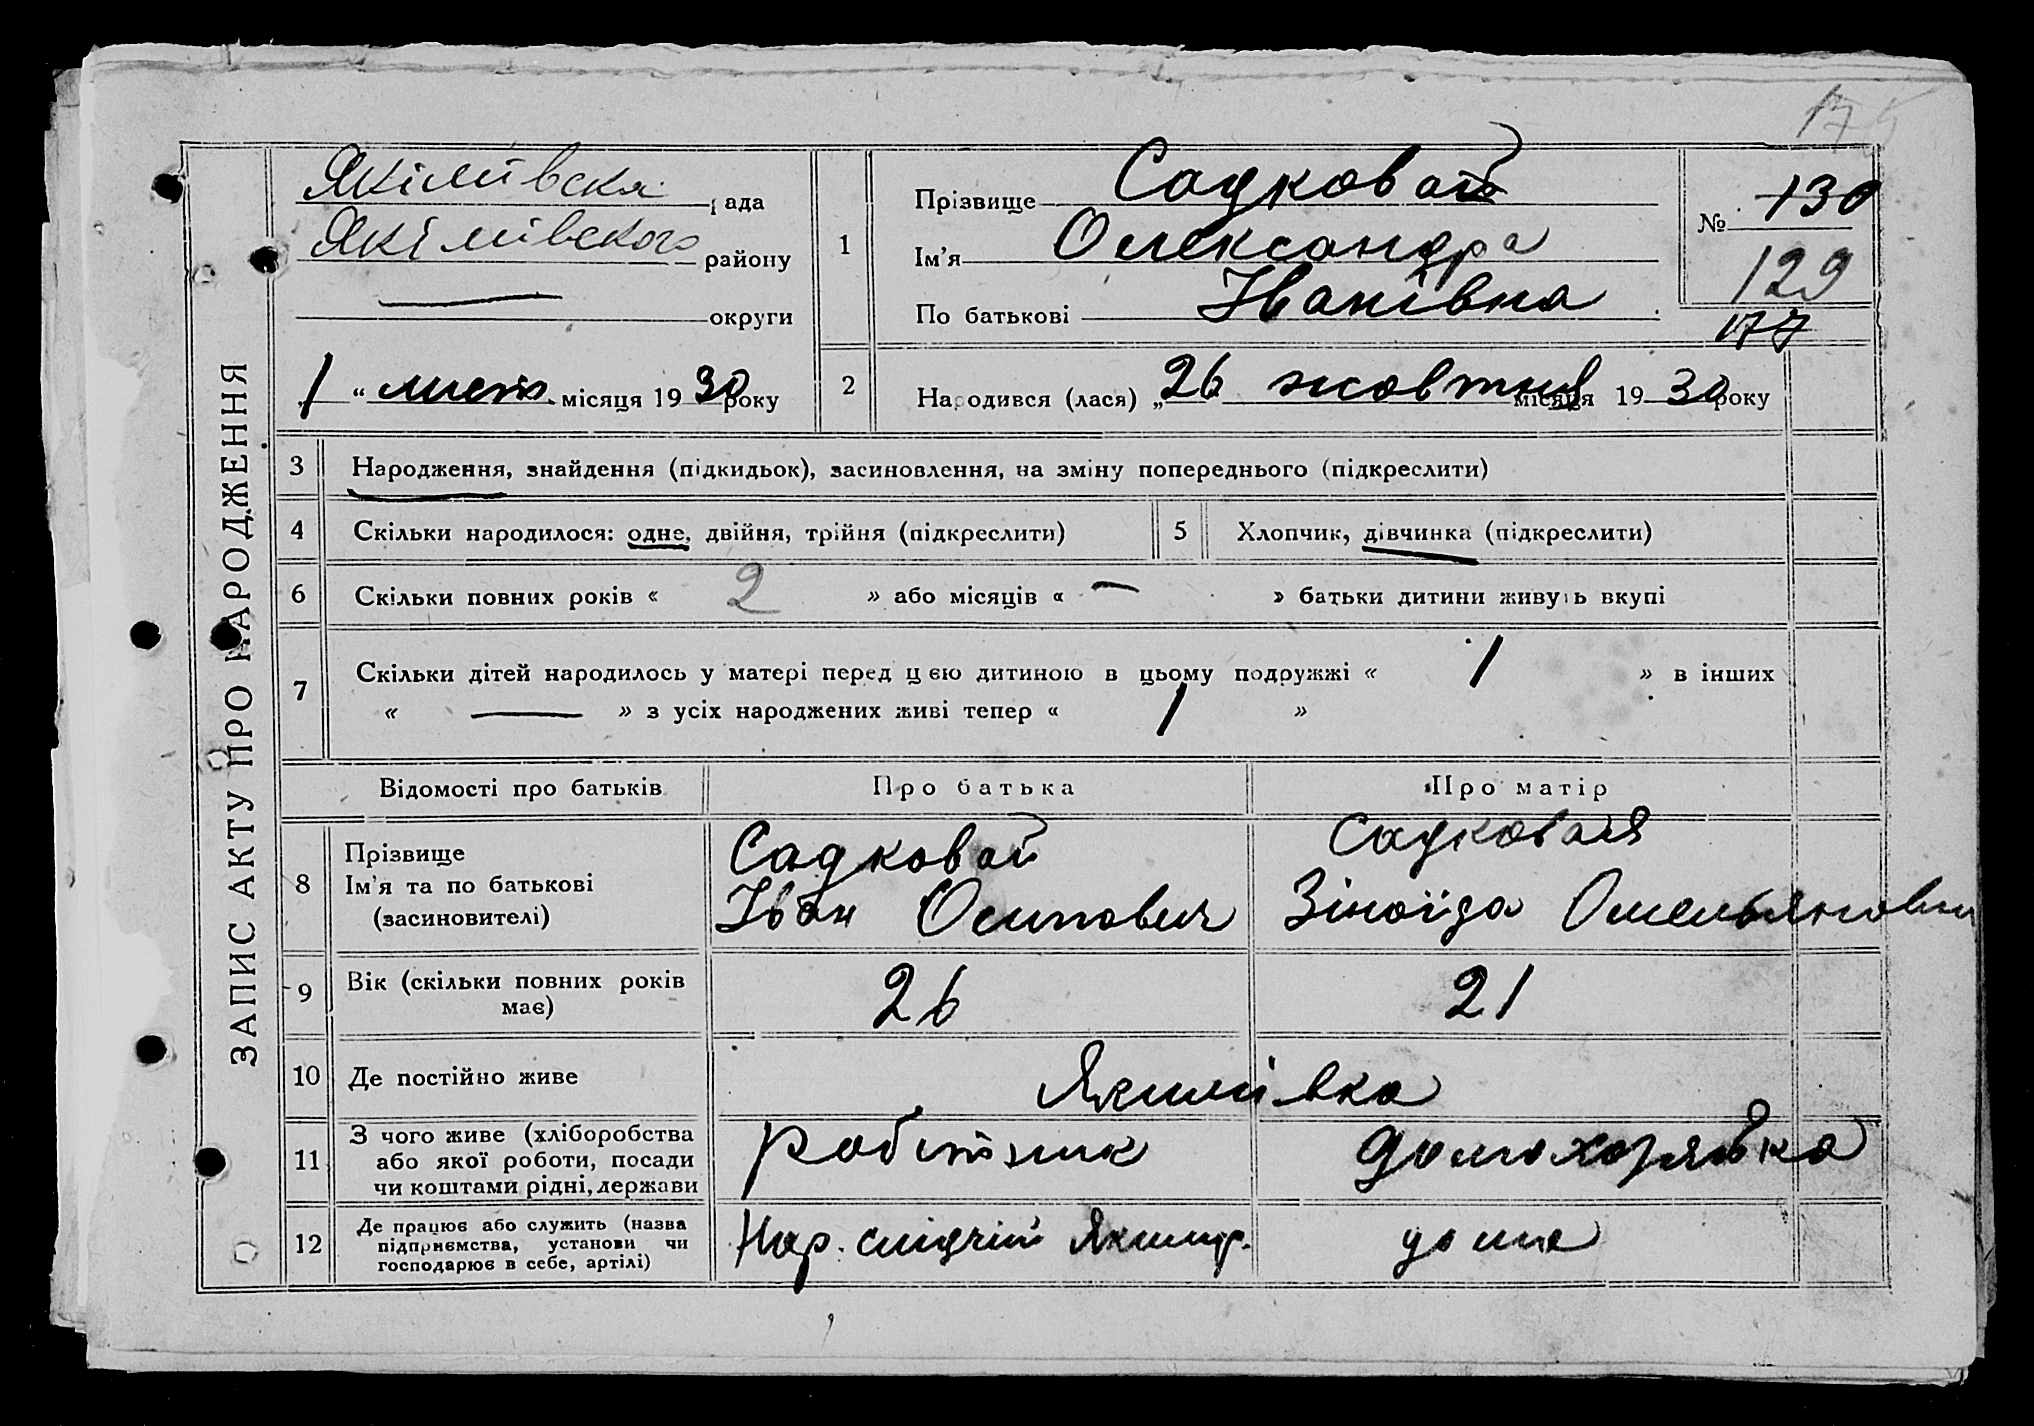 ЗАПИС АКТУ ПРО НАРОДЖЕННЯ
Якімівська рада
Якімівського району
округи
1 " лист. місяця 1930 року
1
Прізвище Садковая
Ім'я Олександра
По батькові Іванівна
№ 130
129
177
2
Народився (лася) „26 жовтня місяця 1930 року
3 Народження, знайдення (підкидьок), засиновлення, на зміну попереднього (підкреслити)
4 Скільки народилося: одне, двійня, трійня (підкреслити)
5 Хлопчик, дівчинка (підкреслити)
6 Скільки повних років « 2 » або місяців « — » батьки дитини живуть вкупі
7 Скільки дітей народилось у матері перед цією дитиною в цьому подружжі « 1 » в інших
« — » з усіх народжених живі тепер « 1 »
Відомості про батьків Про батька Про матір
8 Прізвище
Ім'я та по батькові
(засиновителі)
Садковой
Іван Осипович
Садковая
Зіноїда Омельяновн
9 Вік (скільки повних років
має)
26
21
10 Де постійно живе
Якимівка
11 З чого живе (хліборобства
або якої роботи, посади
чи коштами рідні, держави
робітник
домохозяйка
12 Де працює або служить (назва
підприємства, установи чи
господарює в себе, артілі)
Нар. слідчій
дома